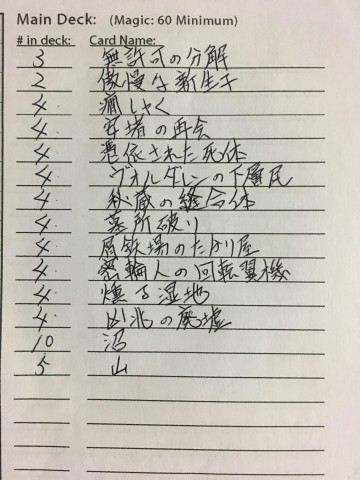 Main Deck: (Magic: 60 Minimum)
# in deck: Card Name:
3 無許可の分解
2 傲慢な新生子
4 癇しゃく
4 安堵の再会
4 憑依された死体
4 ヴォルダレンの下層民
4 秘蔵の縫合体
4 墓所破り
4 屑鉄場のたかり屋
4 密輸人の回転翼機
4 燻る湿地
4 凶兆の廃墟
10 沼
5 山